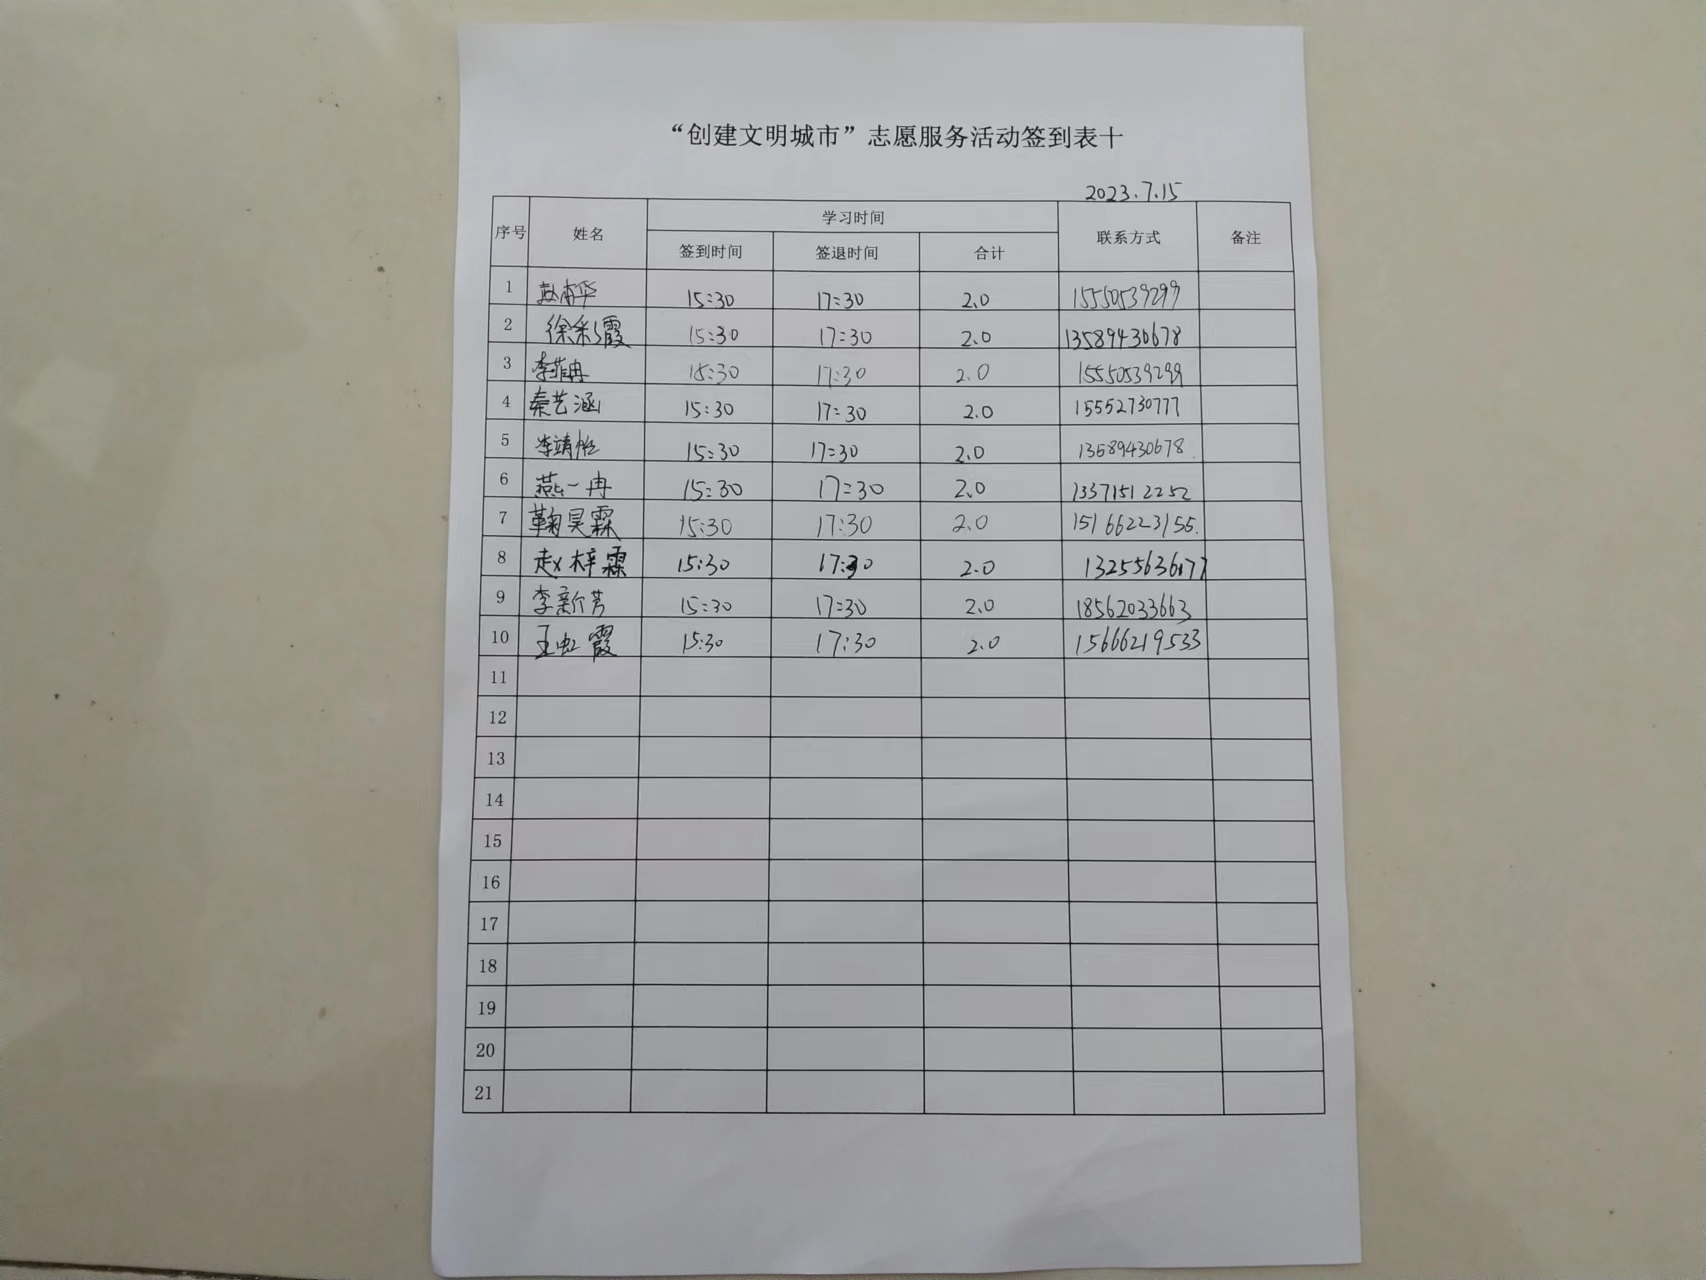 “创建文明城市”志愿服务活动签到表十
2023.7.15
序号 姓名 学习时间 联系方式 备注
签到时间 签退时间 合计
1 赵南华 15:30 17:30 2.0 15550539299
2 徐彩霞 15:30 17:30 2.0 13589430678
3 李菲冉 15:30 17:30 2.0 15550539299
4 秦艺涵 15:30 17:30 2.0 15552730777
5 李靖怡 15:30 17:30 2.0 13589430678
6 燕一冉 15:30 17:30 2.0 13371512252
7 鞠昊霖 15:30 17:30 2.0 15166223155
8 赵梓霖 15:30 17:30 2.0 13255636177
9 李新芳 15:30 17:30 2.0 18562033663
10 王虹霞 15:30 17:30 2.0 15666219533
11
12
13
14
15
16
17
18
19
20
21